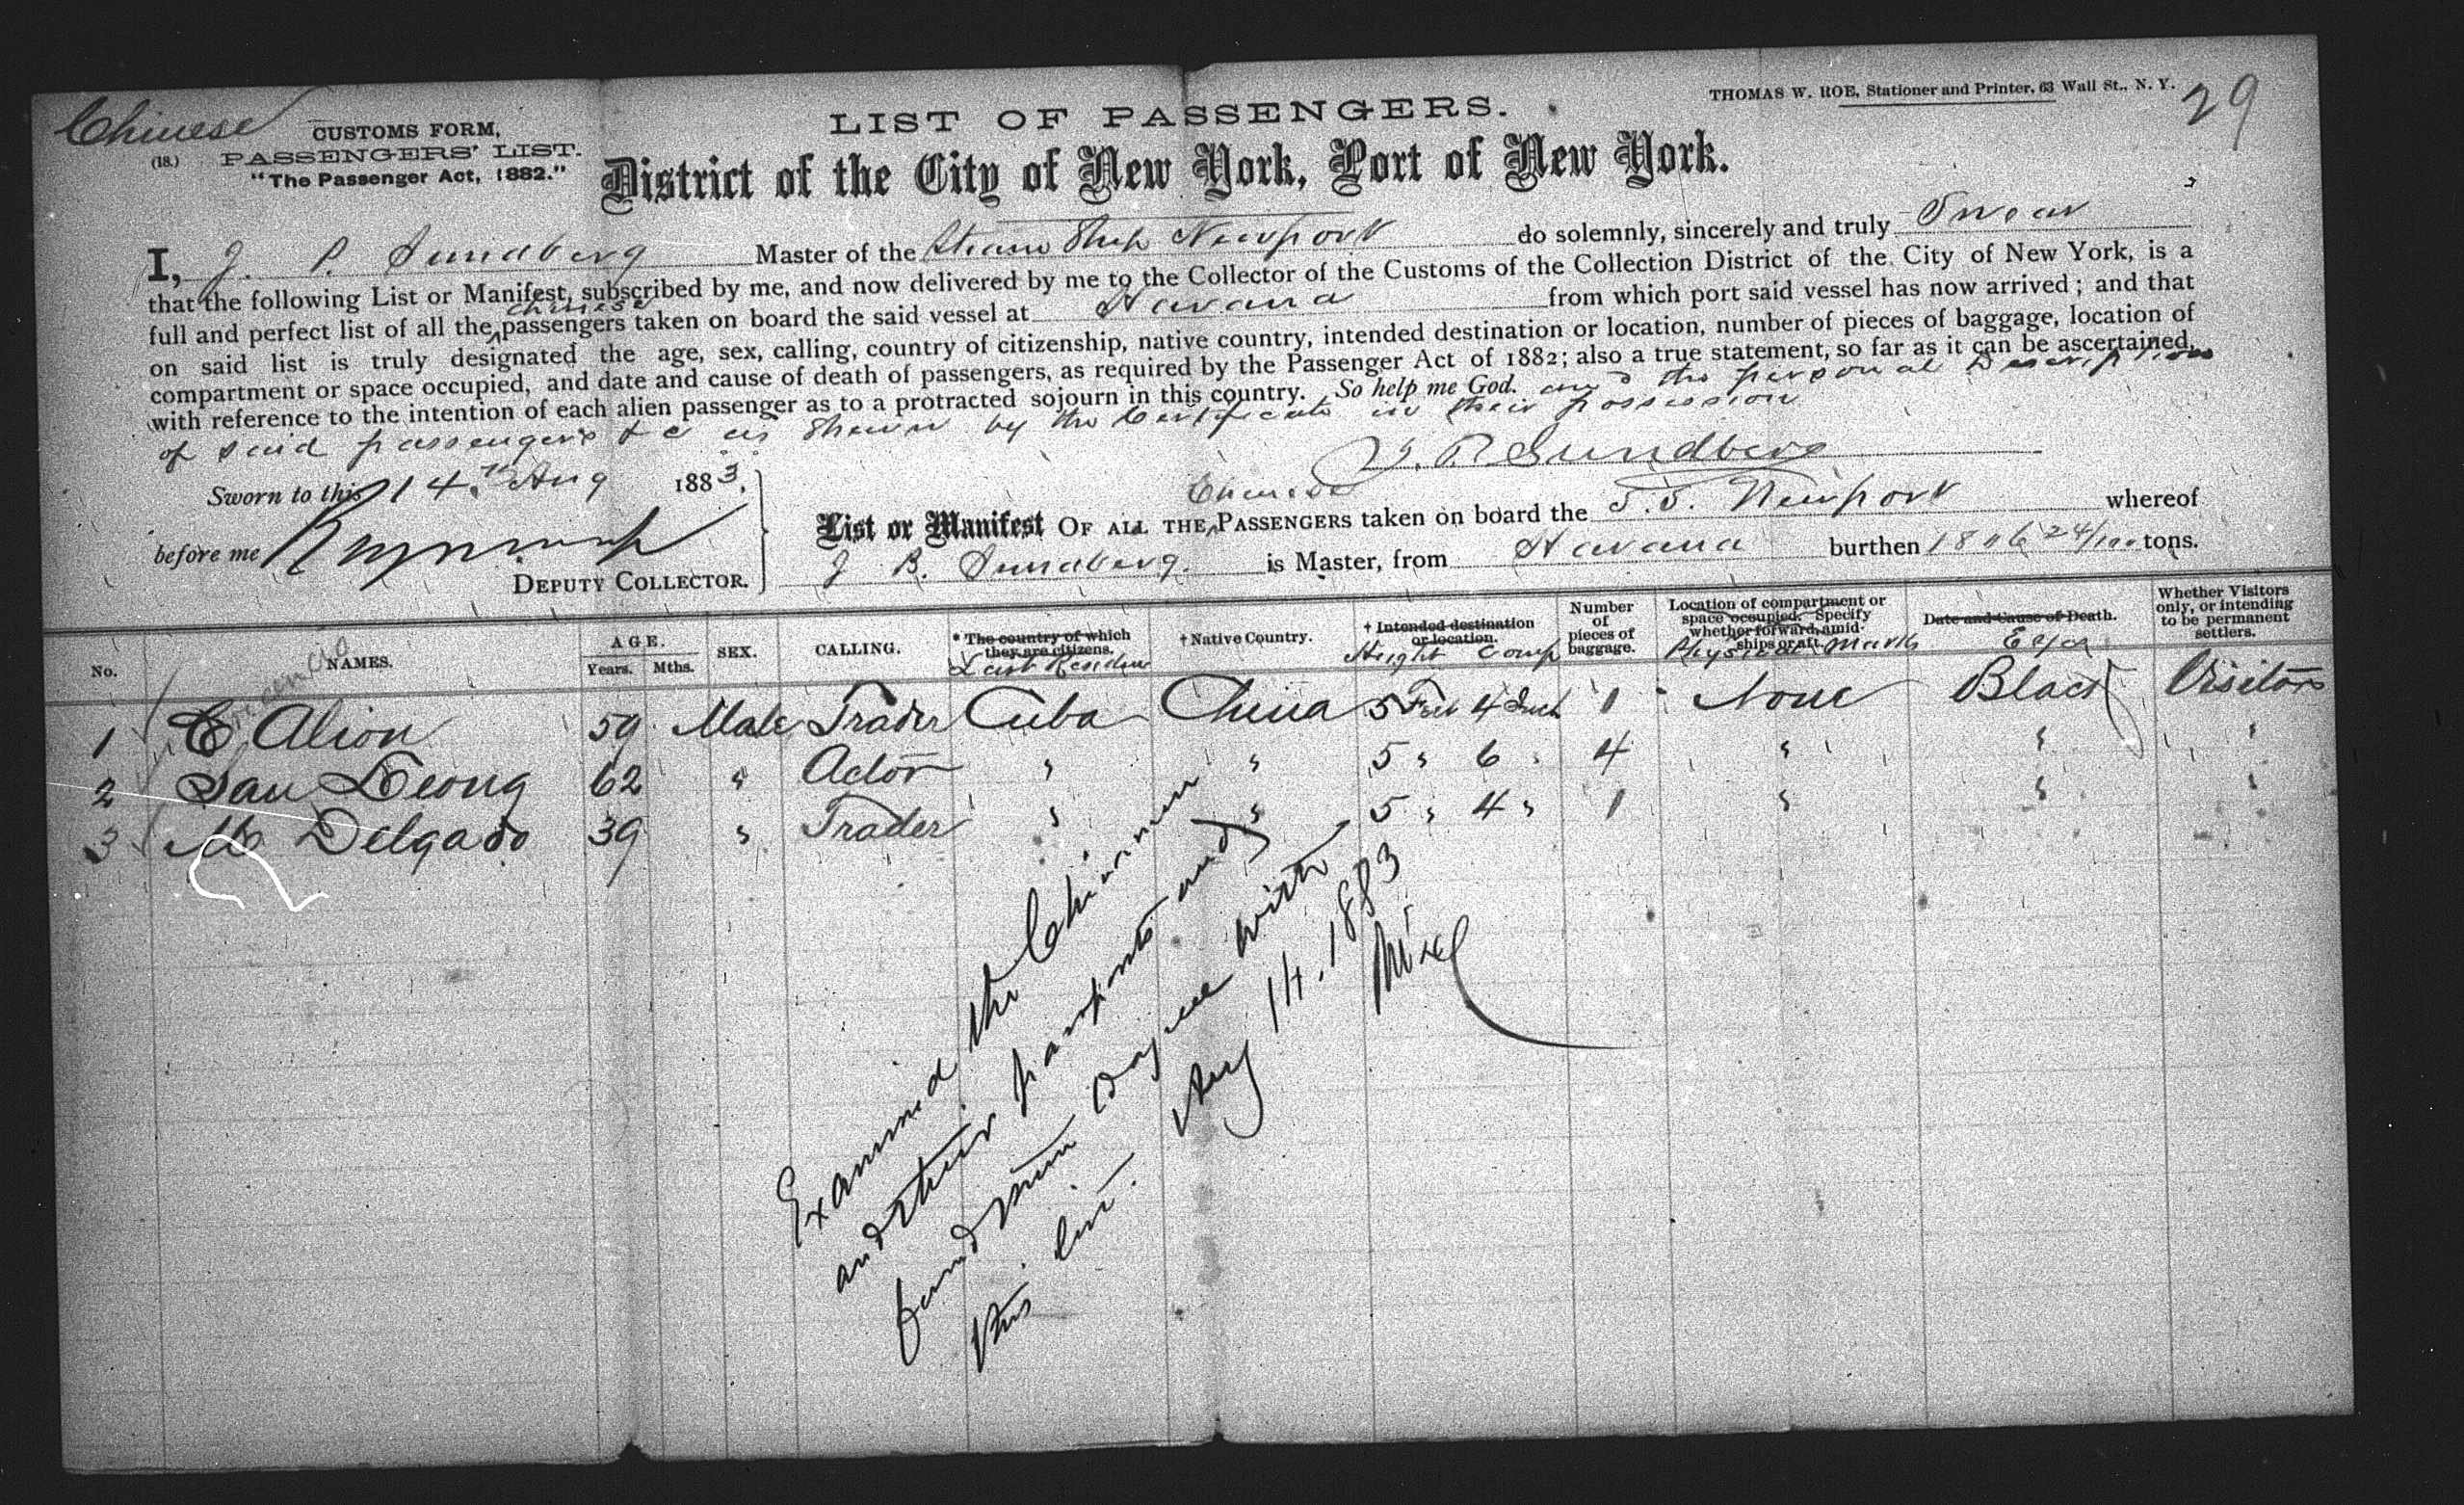 Chinese
29
CUSTOMS FORM,
(18.) PASSENGERS' LIST.
"The Passenger Act, 1882."
LIST OF PASSENGERS.
THOMAS W. ROE, Stationer and Printer, 63 Wall St., N. Y.
District of the City of New York, Port of New York.
I, J. P. Sundberg Master of the Steam Ship Newport do solemnly, sincerely and truly Swear
that the following List or Manifest, subscribed by me, and now delivered by me to the Collector of the Customs of the Collection District of the City of New York, is a
full and perfect list of all the chinese passengers taken on board the said vessel at Havana from which port said vessel has now arrived; and that
on said list is truly designated the age, sex, calling, country of citizenship, native country, intended destination or location, number of pieces of baggage, location of
compartment or space occupied, and date and cause of death of passengers, as required by the Passenger Act of 1882; also a true statement, so far as it can be ascertained,
with reference to the intention of each alien passenger as to a protracted sojourn in this country. So help me God. and the personal Description
of said passengers &c as shewn by the Certificate in their possession
J. P. Sundberg
Sworn to this 14th Aug 1883,
before me
DEPUTY COLLECTOR.
List or Manifest OF ALL THE Chinese PASSENGERS taken on board the S.S. Newport whereof
J B. Sundberg. is Master, from Havana burthen 24/100 tons.
No. NAMES. AGE. Years. Mths. SEX. CALLING. * The country of which they are citizens. Last Residence † Native Country. † Intended destination or location. Height Comp Number of pieces of baggage. Location of compartment or space occupied. Specify whether forward, amidships or aft. Physical Marks Date and Cause of Death. Eyes Whether Visitors only, or intending to be permanent settlers.
1 C Alion 59 Male Trader Cuba China 5 Feet 4 Inch 1 None Black Visitors
2 San Leong 62 " Actor " " 5 " 6 " 4 " " "
3 M Delgado 39 " Trader " " 5 " 4 " 1 " " "
Examined the Chinamen
and their passports and
found them to agree with
this list.
Aug 14. 1883